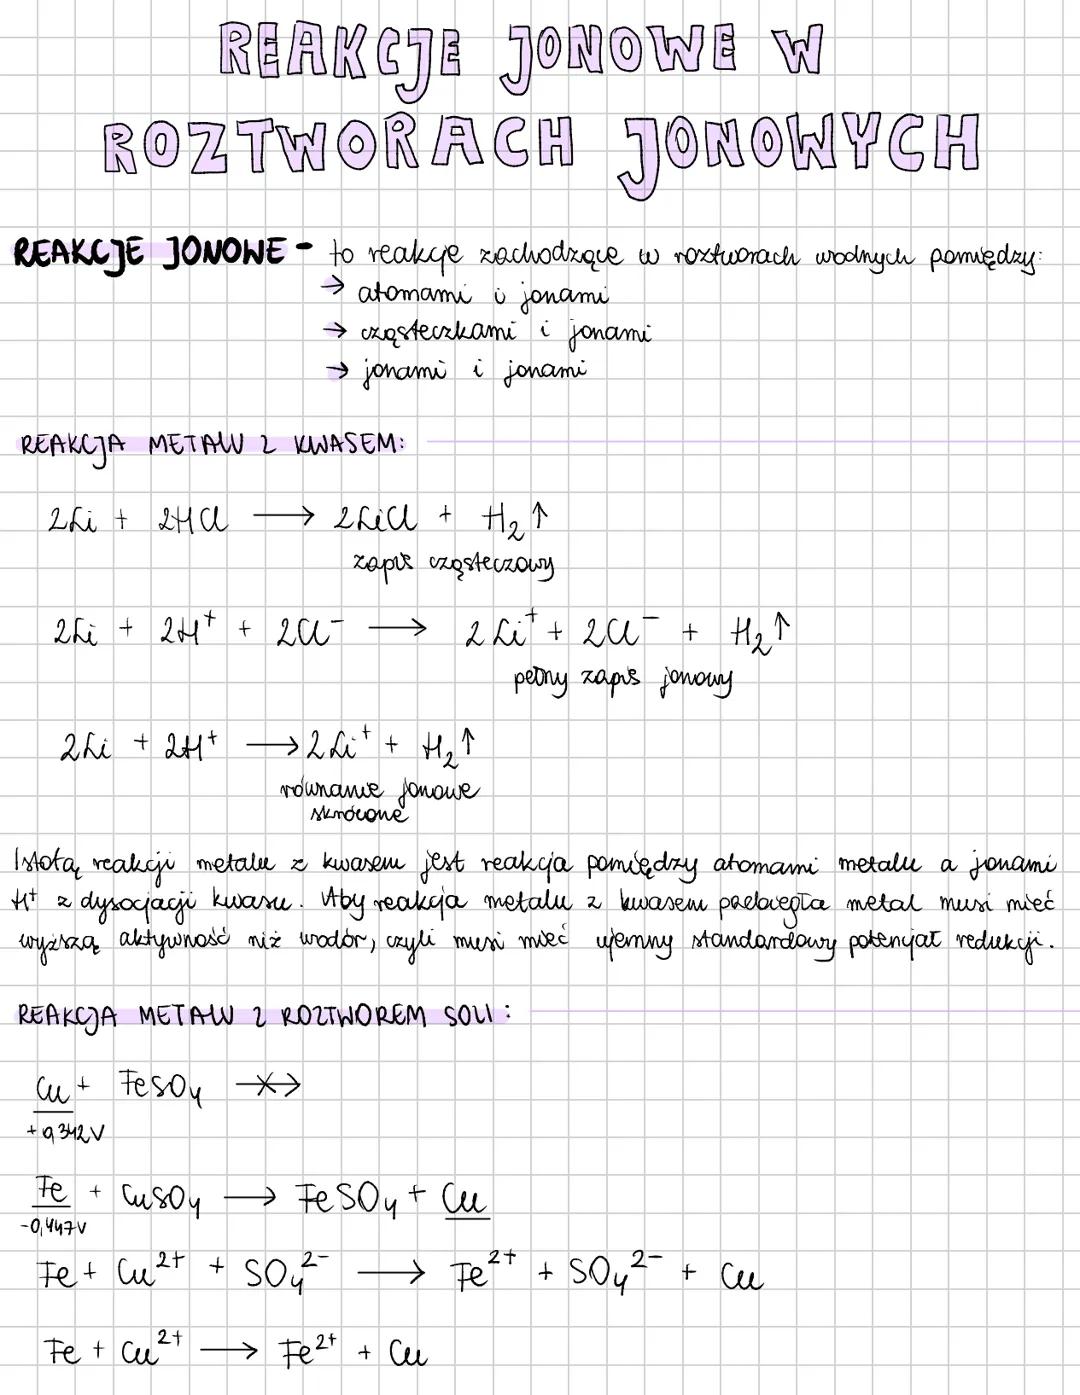 REAKCJE JONOWE W
ROZTWORACH JONOWYCH
REAKCJE JONOWE - to reakcje zachodzące w roztworach wodnych pomiędzy:
→ atomami i jonami
→ cząsteczkami i jonami
→ jonami i jonami
REAKCJA METALU Z KWASEM:
2Li + 2HCl ⟶ 2LiCl + H₂↑
zapis cząsteczowy
2Li + 2H⁺ + 2Cl⁻ ⟶ 2Li⁺ + 2Cl⁻ + H₂↑
pełny zapis jonowy
2Li + 2H⁺ ⟶ 2Li⁺ + H₂↑
równanie jonowe
skrócone
Istotą reakcji metalu z kwasem jest reakcja pomiędzy atomami metalu a jonami
H⁺ z dysocjacji kwasu. Aby reakcja metalu z kwasem przebiegła metal musi mieć
wyższą aktywność niż wodór, czyli musi mieć ujemny standardowy potencjał redukcji.
REAKCJA METALU Z ROZTWOREM SOLI:
Cu + FeSO₄ ⟶̸
+0,342V
Fe + CuSO₄ ⟶ FeSO₄ + Cu
-0,447V
Fe + Cu²⁺ + SO₄²⁻ ⟶ Fe²⁺ + SO₄²⁻ + Cu
Fe + Cu²⁺ ⟶ Fe²⁺ + Cu